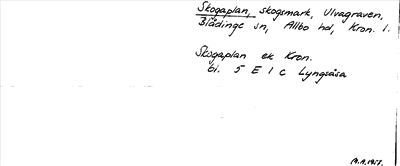 Skogaplan, skogsmark, Ulvagraven,
Blädinge sn, Allbo hd, Kron. l.
Skogaplan ek Kron.
bl. 5 E 1 c Lyngsåsa